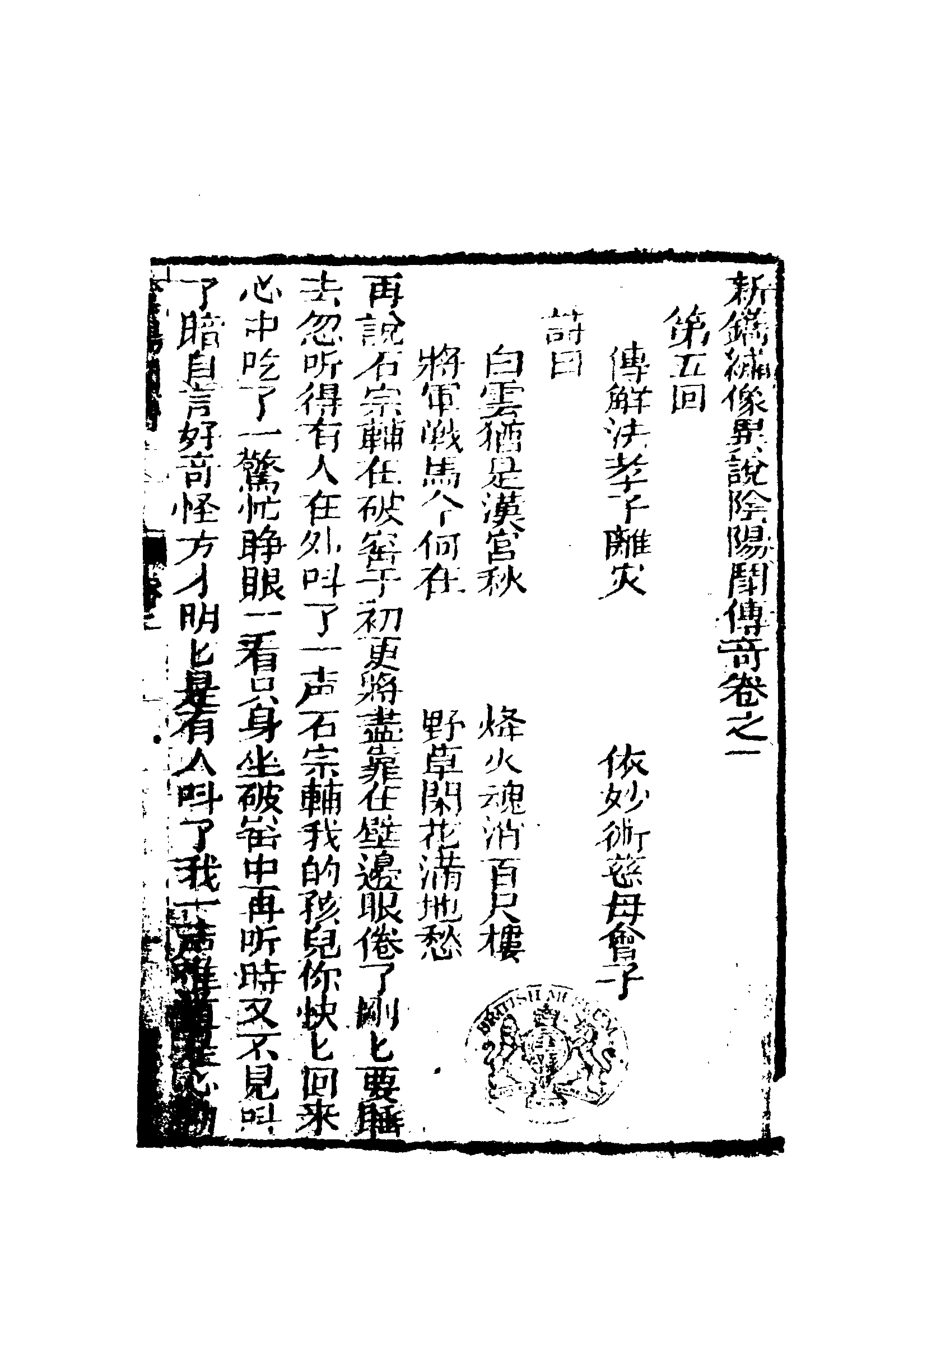 新鐫繡像異說陰陽鬪傳奇卷之一
第五回
傳解法孝子離灾 依妙術慈母會子
詩曰
白雲猶是漢宮秋 烽火魂消百尺樓
將軍戰馬今何在 野草閑花滿地愁
再說石宗輔在破窑于初更將盡靠在壁邊眼倦了剛匕要睡
去忽听得有人在外叫了一声石宗輔我的孩兒你快匕回来
心中吃了一驚忙睁眼一看只身坐破窑中再听時又不見叫
了暗自言好竒怪方才明匕是有人叫了我一声难道是心動
BRITISH MUSEUM